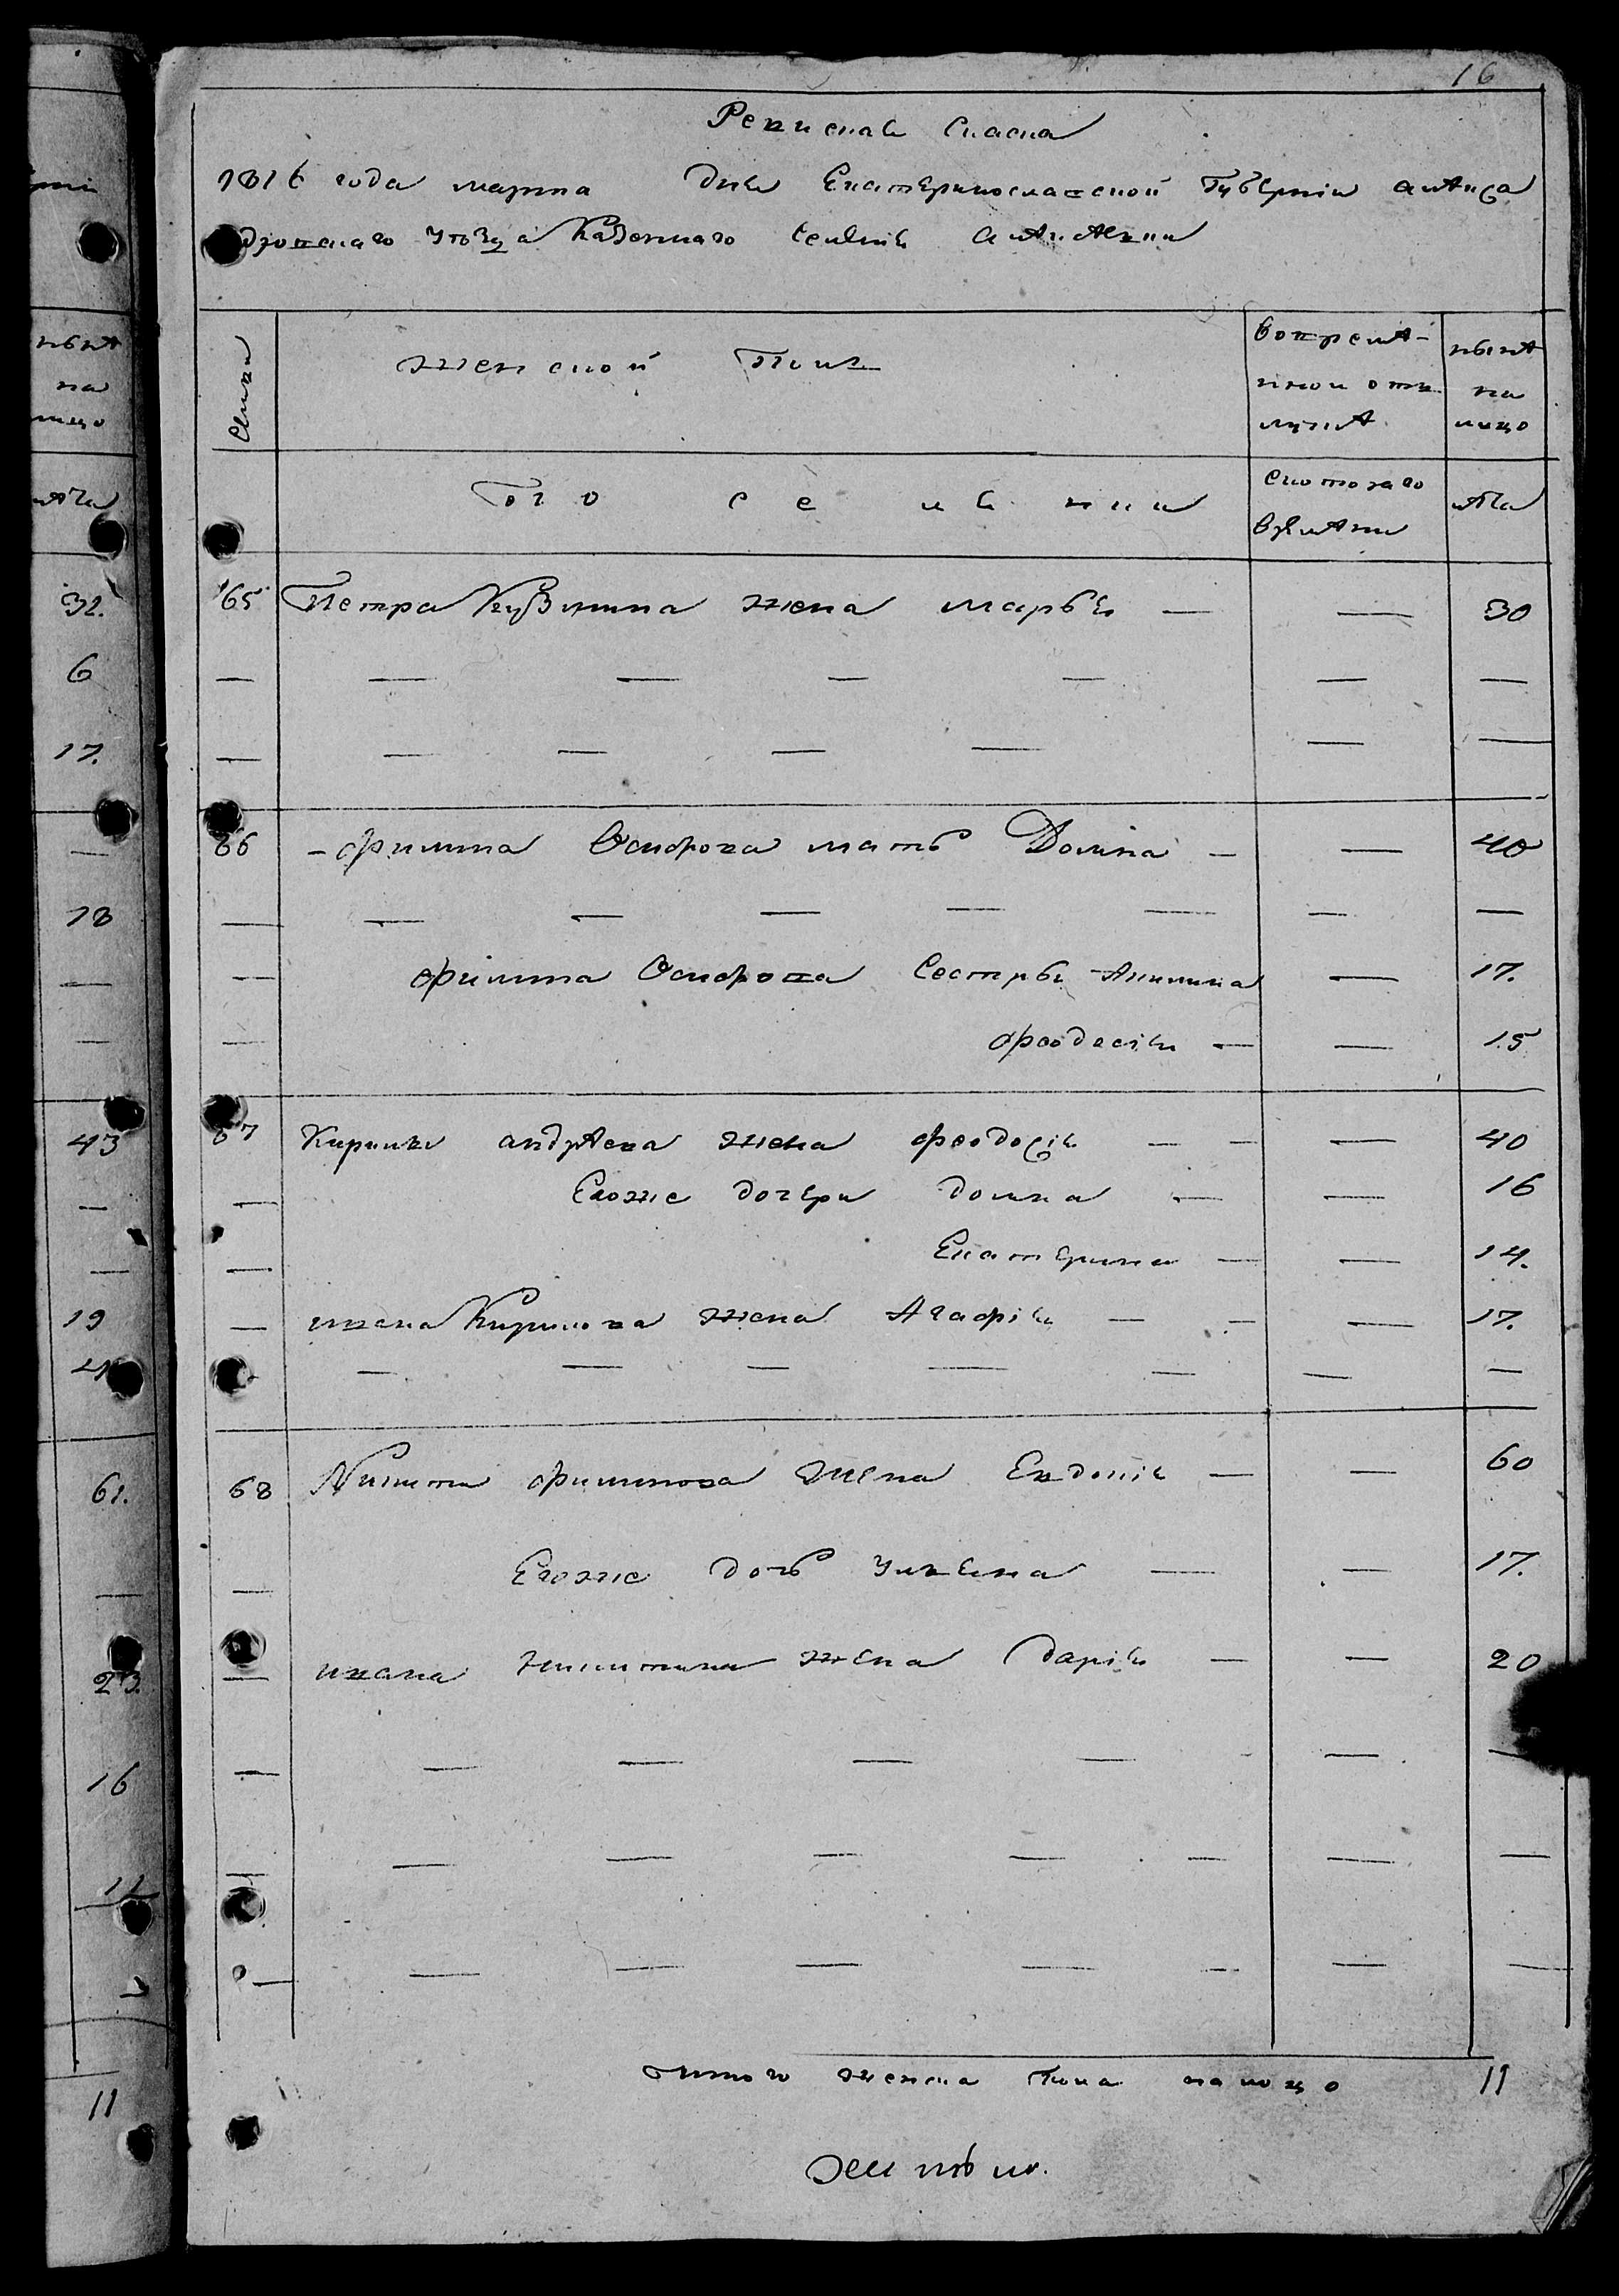 16
Ревизская Сказка
1816 года марта дня Екатеринославской Губернии Алекса
ндровскаго уезда Казеннаго Селения
Семьи
Женской Полъ
вовремян-
ной отъ
лучке
ныне
на
лицо
Поселяни
скотораго
времяни
лета
65 Петра Кузмина жена марья — — 30
— — — — — — —
— — — — — — —
66 - филипа Осипова мать Домна — — 40
— — — — — — — —
— филипа Осипова Сестры Акилина — 17.
— феодосия — — 15
67 Кирилы андреева жена феодосия — — — 40
— Егоже дочери домна — — 16
Екатерина — — 14.
— ивана Кирилова жена Агафия — — — 17.
— — — — — — —
68 Никиты филипова жена Евдокия — — 60
— Егоже дочь Ульяна — — 17.
— ивана никитина жена дарья — — 20
— — — — — — — —
— — — — — — — —
— — — — — — — —
Итого женска пола налицо 11
ныне
на
лицо
лета
32.
6
17.
—
18
—
—
43
—
—
19
61.
—
23.
16
11
11